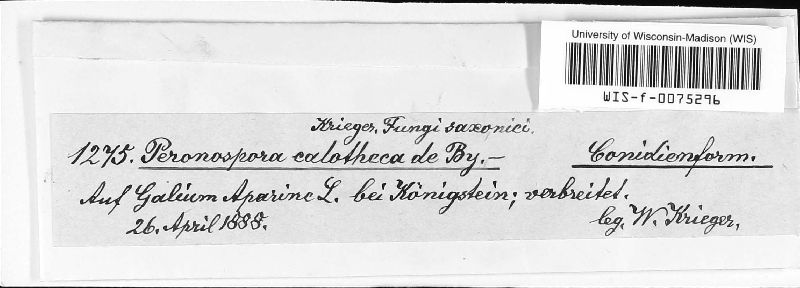 University of Wisconsin-Madison (WIS)
WIS-f-0075296
Krieger, Fungi saxonici.
1275. Peronospora calotheca de By.— Conidienform.
Auf Galium Aparine L. bei Königstein; verbreitet.
26. April 1888. leg. W. Krieger.